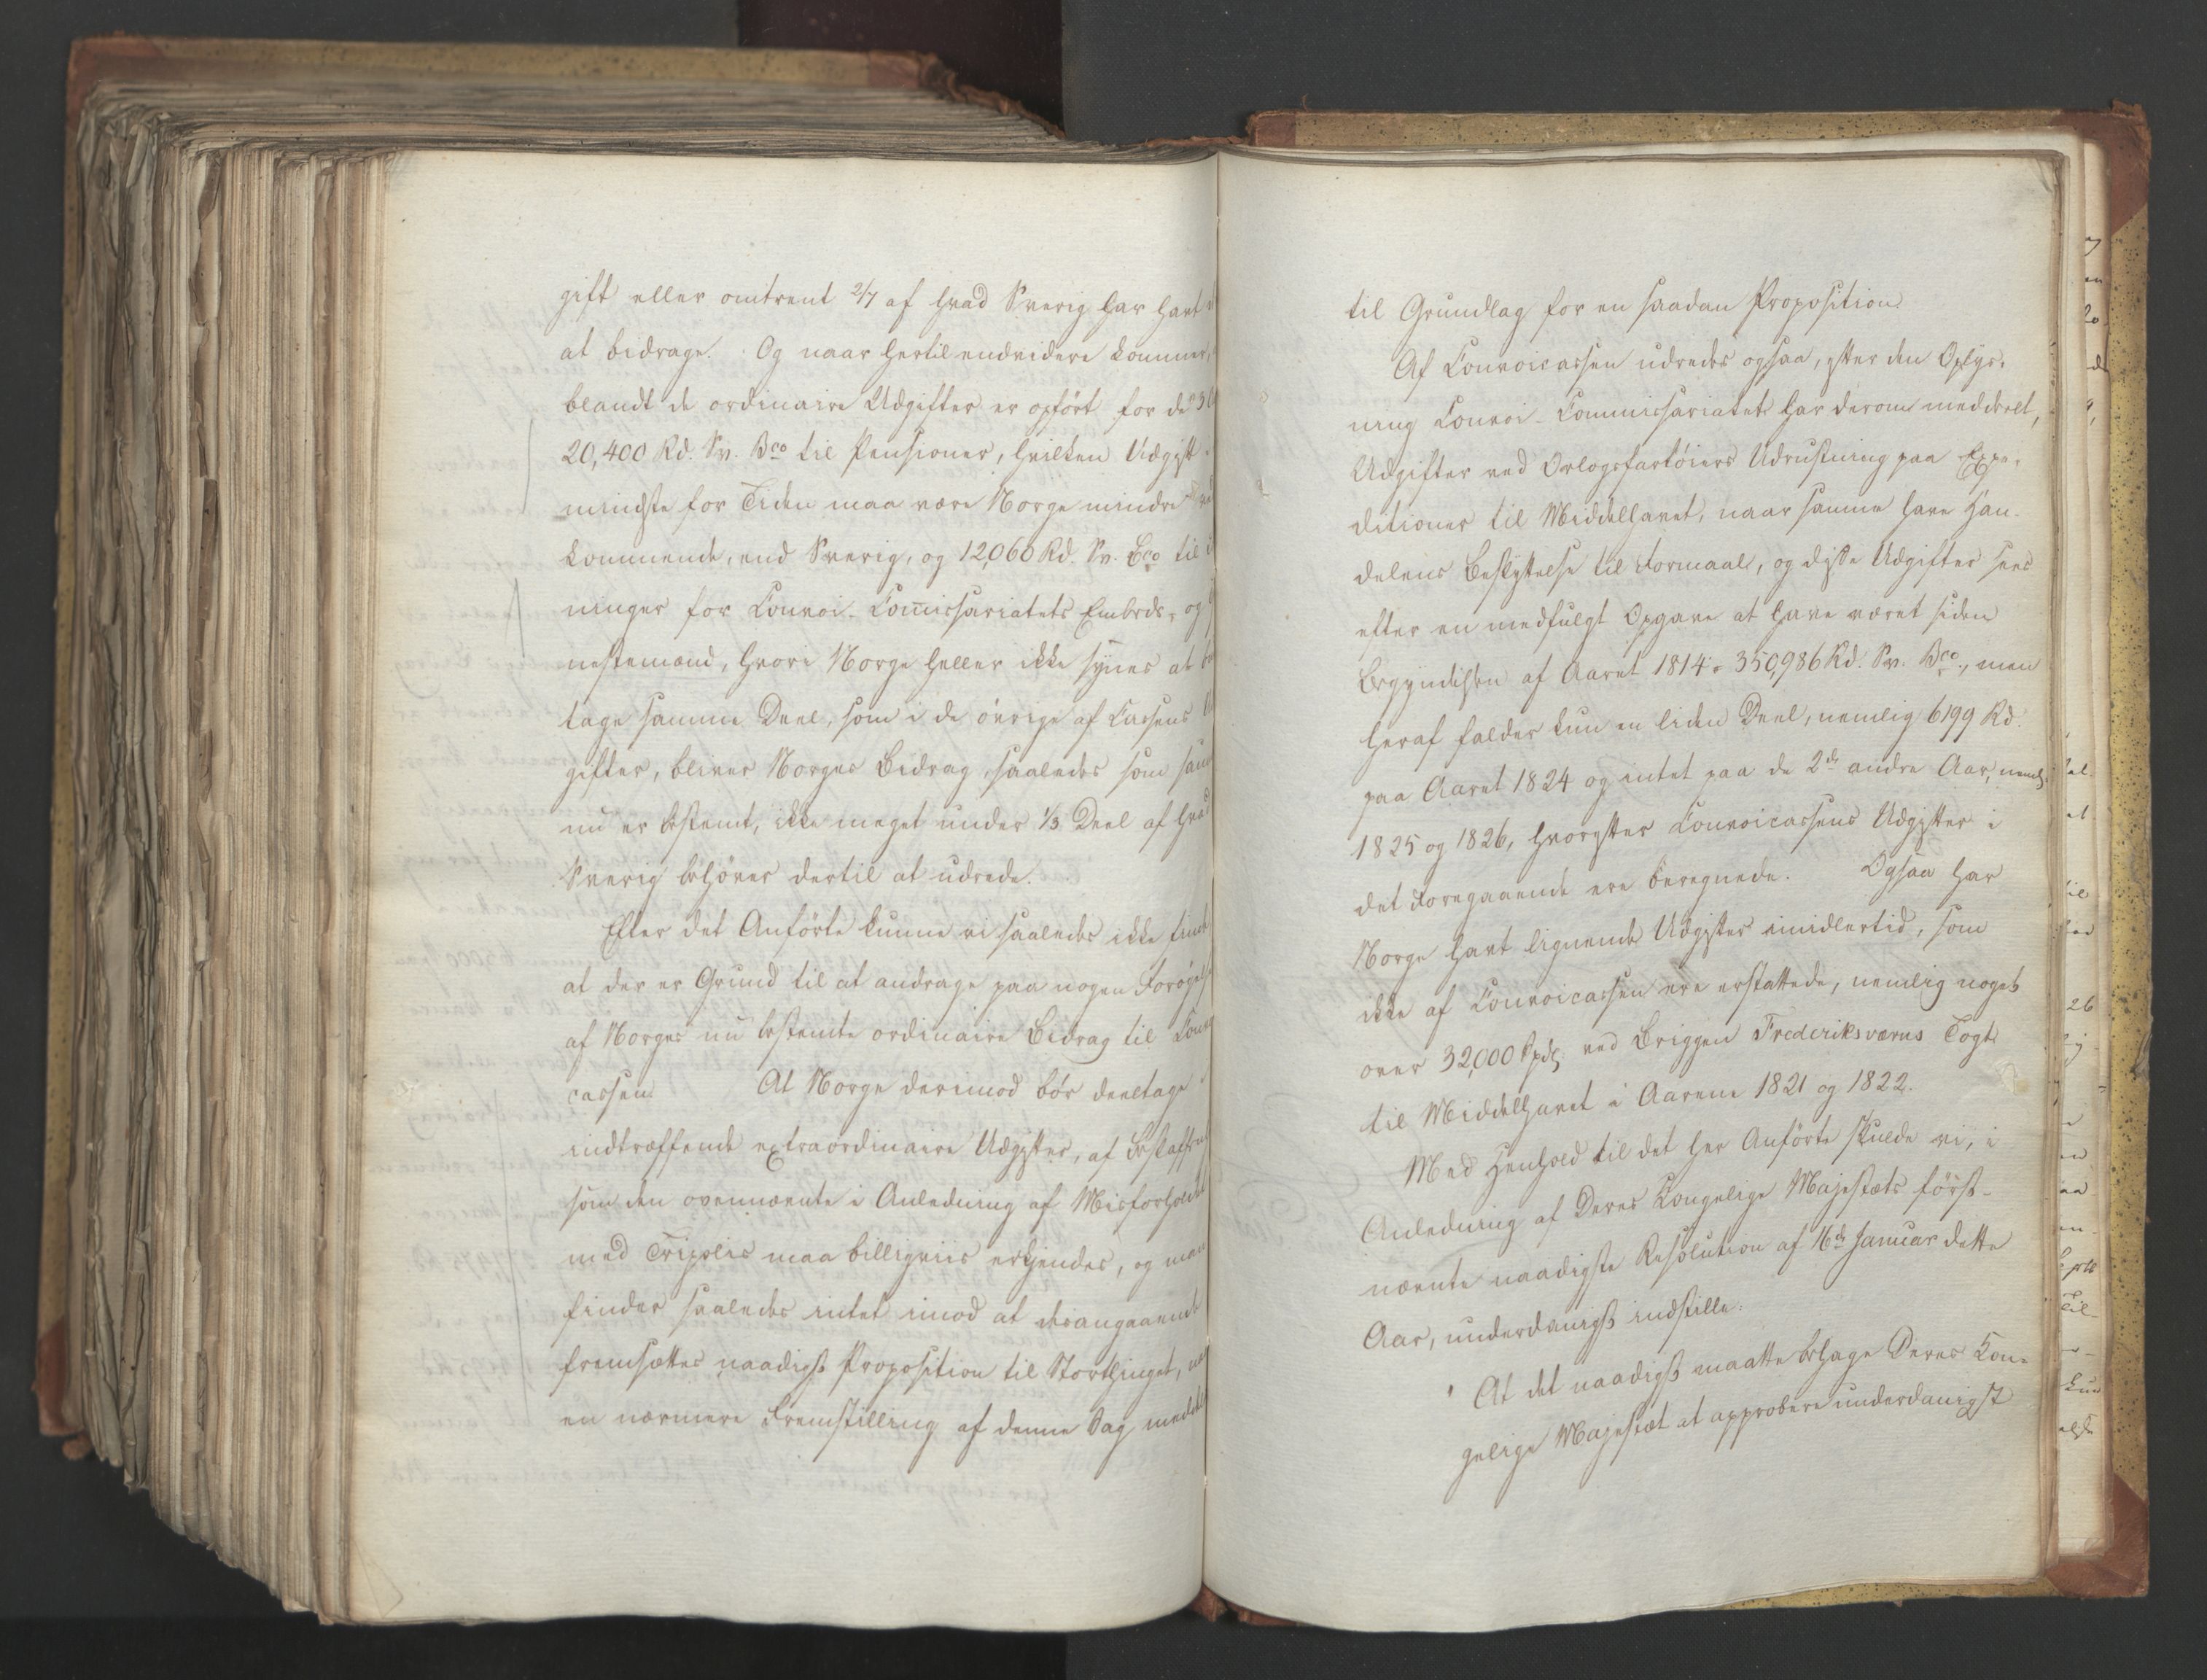 gift eller omtrent 2/7 af hvad Sverig har havt
at bidrage. Og naar hertil endvidere kommer,
blandt de ordinaire Udgifter er opført for de 3
20,400 Rd. Sv. Bco til Pensioner, hvilken Udgift
mindste for Tiden maa være Norge mindre
kommende, end Sverig, og 12,060 Rd. Sv. Bco til
ninger for Convoi-Comissariatets Embeds- og
nestemænd, hvori Norge heller ikke synes at
tage samme Deel, som i de øvrige af Cassens
gifter, bliver Norges Bidrag, saaledes som
nu er bestemt, ikke meget under 1/3 Deel af hvad
Sverig behøver dertil at udrede.
Efter det Anførte kunne vi saaledes ikke finde
at der er Grund til at andrage paa nogen Forøgelse
af Norges nu bestemte ordinaire Bidrag til
cassen. At Norge derimod bør deeltage
indtræffende extraordinaire Udgifter, af Beskaffen
som den ovennævnte i Anledning af Misforholdet
med Tripolis maa billigviis erkjendes, og man
finder saaledes intet imod at derangaaende
fremsættes naadigst Proposition til Storthinget,
en nærmere Fremstilling af denne Sag
til Grundlag for en saadan Proposition.
Af Convoicassen udredes ogsaa, efter den Oplys-
ning Convoi-Commissariatet har derom meddeelt,
Udgifter ved Orlogsfartøiers Udrustning paa Expe-
ditioner til Middelhavet, naar samme have Han-
delens Beskyttelse til Formaal, og disse Udgifter sees
efter en medfulgt Opgave at have været siden
Begyndelsen af Aaret 1814 = 350,986 Rd. Sv. Bco., men
heraf falder kun en liden Deel, nemlig 6199 Rd.
paa Aaret 1824 og intet paa de 2de andre Aar, neml:
1825 og 1826, hvorefter Convoicassens Udgifter i
det Foregaaende ere beregnede. Ogsaa har
Norge havt lignende Udgifter imidlertid, som
ikke af Convoicassen ere erstattede, nemlig noget
over 32,000 Spd. ved Briggen Frederiksværns Togt
til Middelhavet i Aarene 1821 og 1822.
Med Henhold til det her Anførte skulde vi, i
Anledning af Deres Kongelige Majestæts først-
nævnte naadigste Resolution af 16de Januar dette
Aar, underdanigst indstille:
At det naadigst maatte behage Deres Kon-
gelige Majestæt at approbere underdanigst